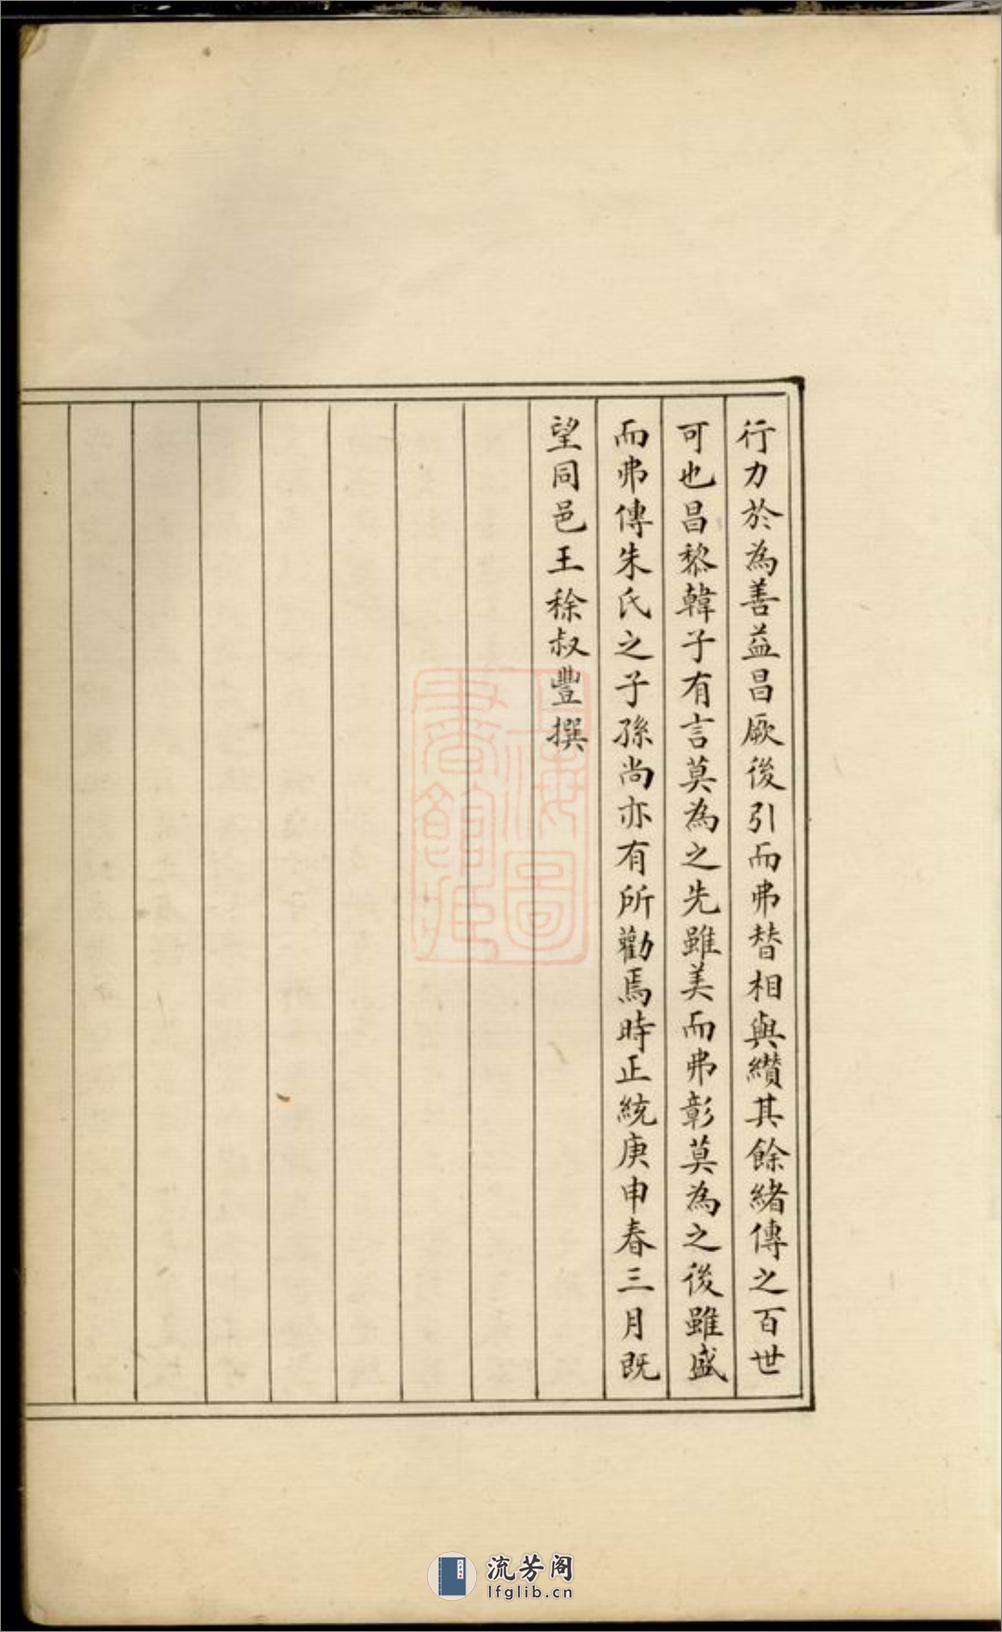 行力於為善益昌厥後引而弗替相與纘其餘緒傳之百世
可也昌黎韓子有言莫為之先雖美而弗彰莫為之後雖盛
而弗傳朱氏之子孫尚亦有所勸焉時正統庚申春三月既
望同邑王稌叔豐撰
上海圖
書館藏
流芳阁
lfglib.cn